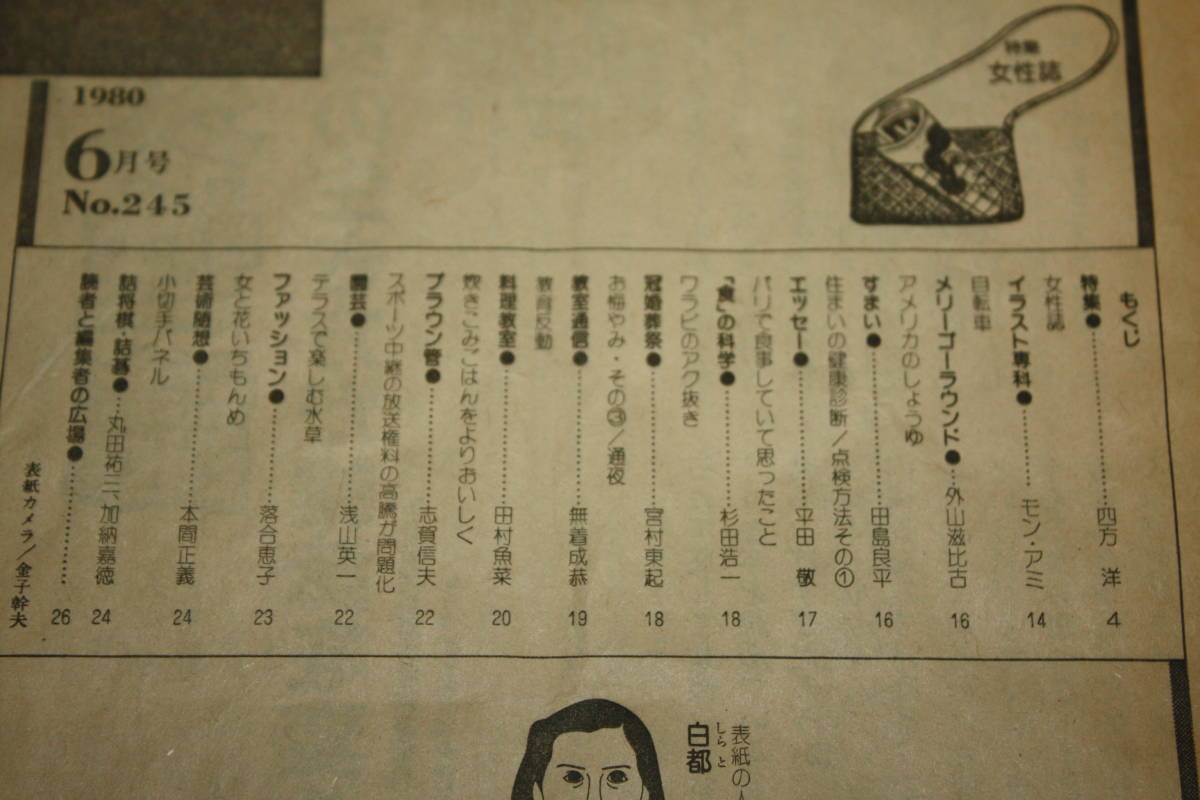 1980
6月号
No.245
特集
女性誌
もくじ
特集●……四方 洋 4
女性誌
イラスト専科●……モン・アミ 14
自転車
メリーゴーラウンド●……外山滋比古 16
アメリカのしょうゆ
すまい●……田島良平 16
住まいの健康診断/点検方法その①
エッセー●……平田 敬 17
パリで食事していて思ったこと
「食」の科学●……杉田浩一 18
ワラビのアク抜き
冠婚葬祭●……宮村東起 18
お悔やみ・その③/通夜
教室通信●……無着成恭 19
教育反動
料理教室●……田村魚菜 20
炊きこみごはんをよりおいしく
ブラウン管●……志賀信夫 22
スポーツ中継の放送権料の高騰が問題化
園芸●……浅山英一 22
テラスで楽しむ水草
ファッション●……落合恵子 23
女と花いちもんめ
芸術随想●……本間正義 24
小切手パネル
詰将棋・詰碁●……丸田祐三、加納嘉徳 24
読者と編集者の広場●……26
表紙カメラ/金子幹夫
表紙の人
しらと
白都